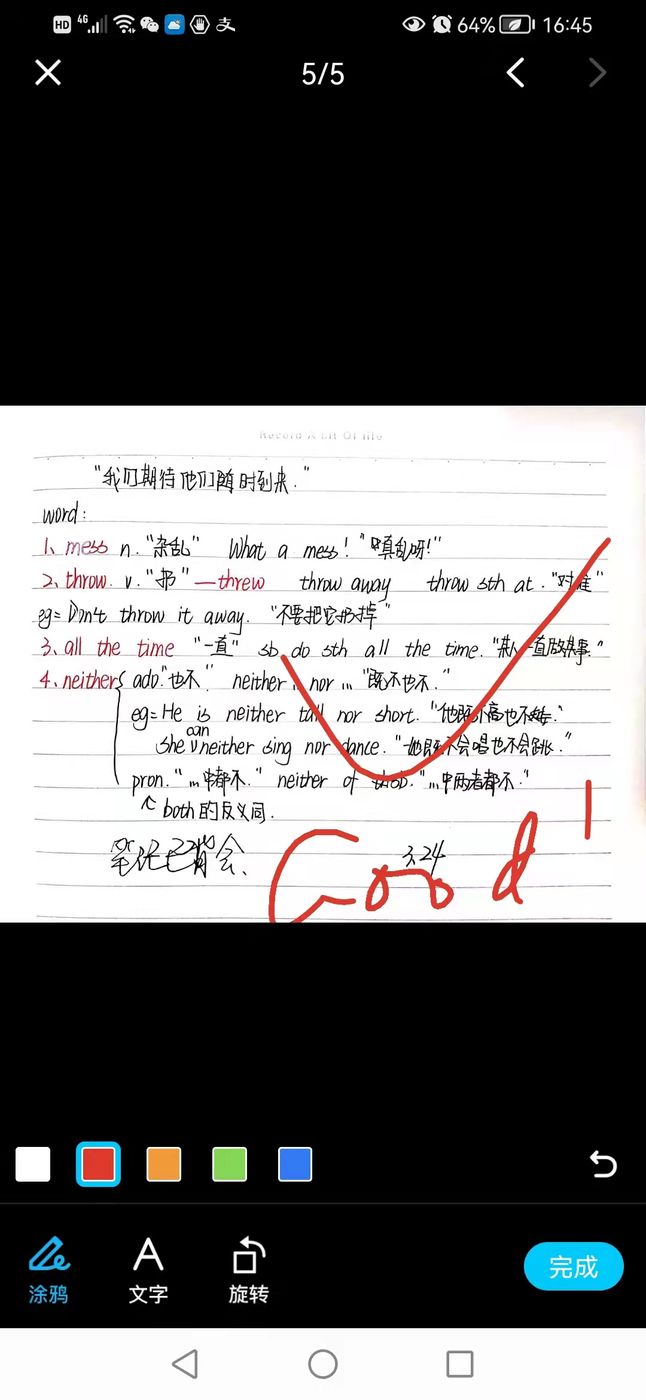 HD 4G 64% 16:45
5/5
Record A Bit Of life
"我们期待他们随时到来."
word:
1、mess n. "杂乱" What a mess! "真乱呀!"
2、throw. v. "扔" —threw throw away throw sth at. "对准"
eg= Don't throw it away. "不要把它扔掉"
3、all the time "一直" sb do sth all the time. "某人一直做某事."
4、neither { adv. "也不" neither... nor ... "既不也不."
eg= He is neither tall nor short. "他既不高也不矮."
She can neither sing nor dance. "她既不会唱也不会跳."
pron. "...中都不." neither of "...中两者都不."
both的反义词.
笔记已背会、 3.24
Good!
涂鸦 文字 旋转 完成